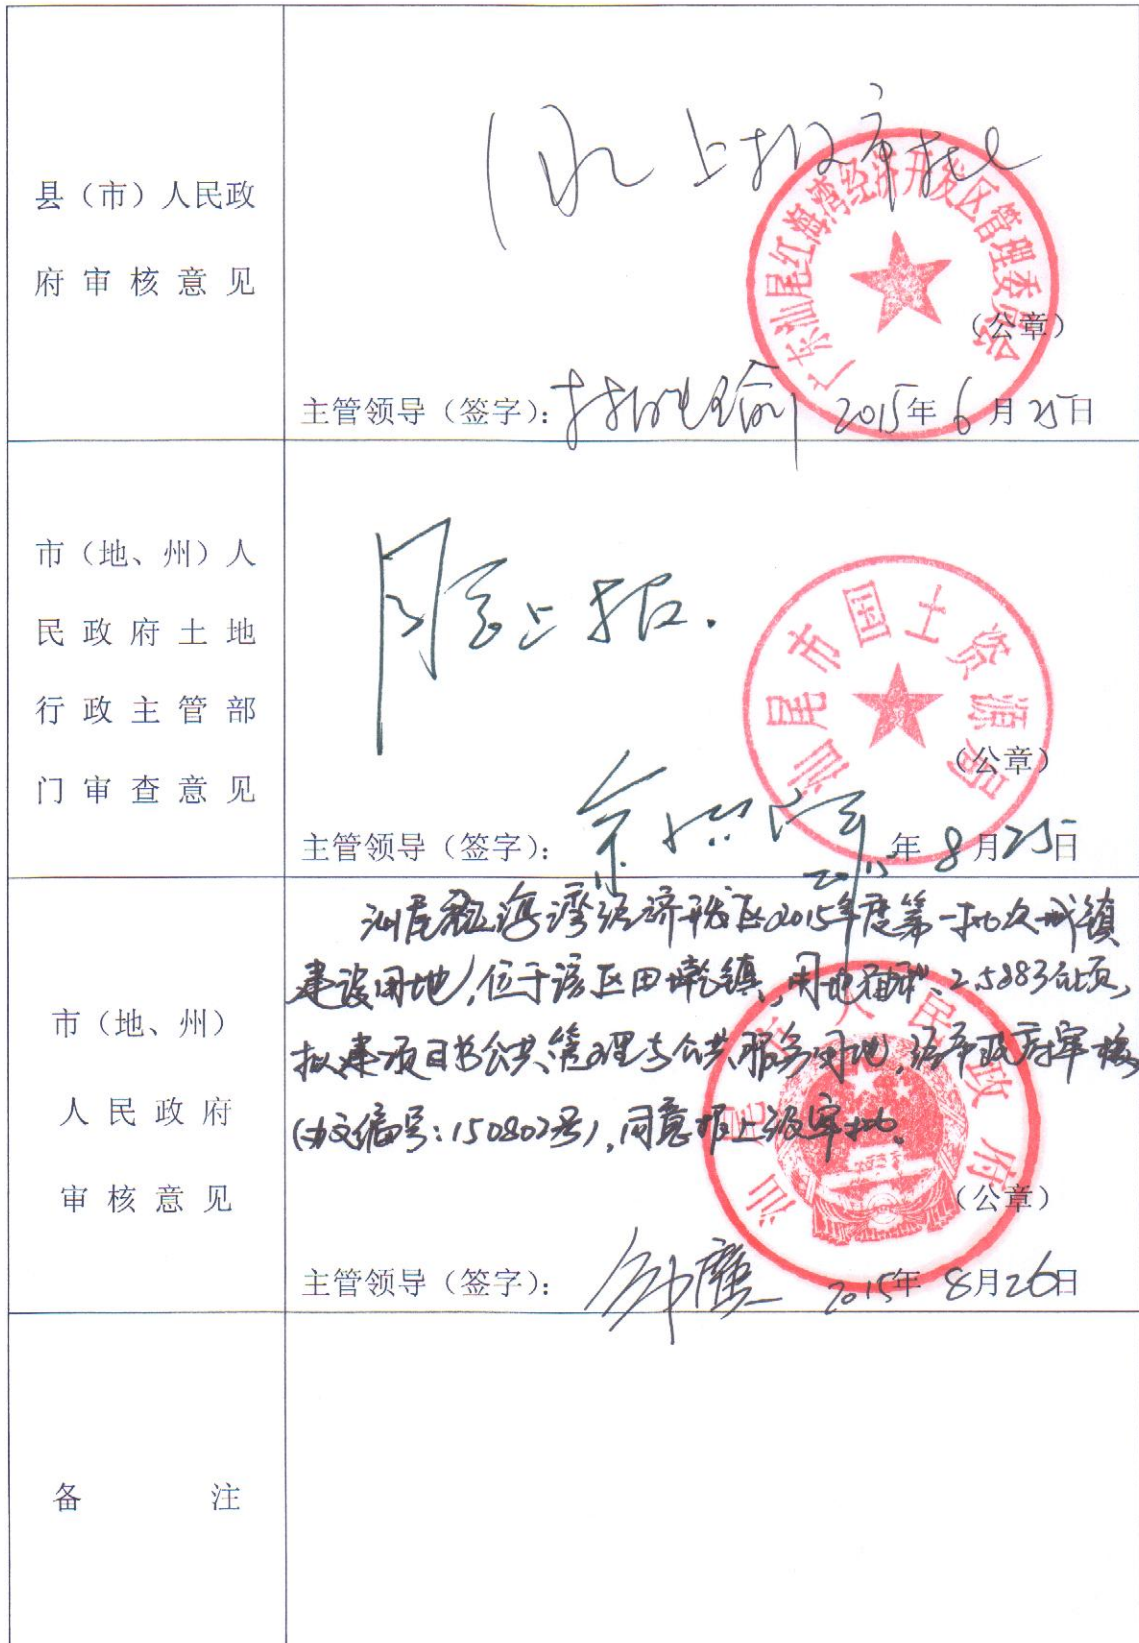 县（市）人民政
府审核意见
上报市批
广东汕尾红海湾经济开发区管理委员会
（公章）
主管领导（签字）： 2015年6月25日
市（地、州）人
民政府土地
行政主管部
门审查意见
同意上报.
汕尾市国土资源局
（公章）
主管领导（签字）： 2015年8月25日
市（地、州）
人民政府
审核意见
汕尾红海湾经济开发区2015年度第一批次城镇
建设用地,位于该区田墘镇,用地面积2.5883公顷,
拟建项目为公共管理与公共服务用地,经市政府审核
(办文编号:150802号),同意报上级审批。
汕尾市人民政府
（公章）
主管领导（签字）： 2015年8月26日
备 注